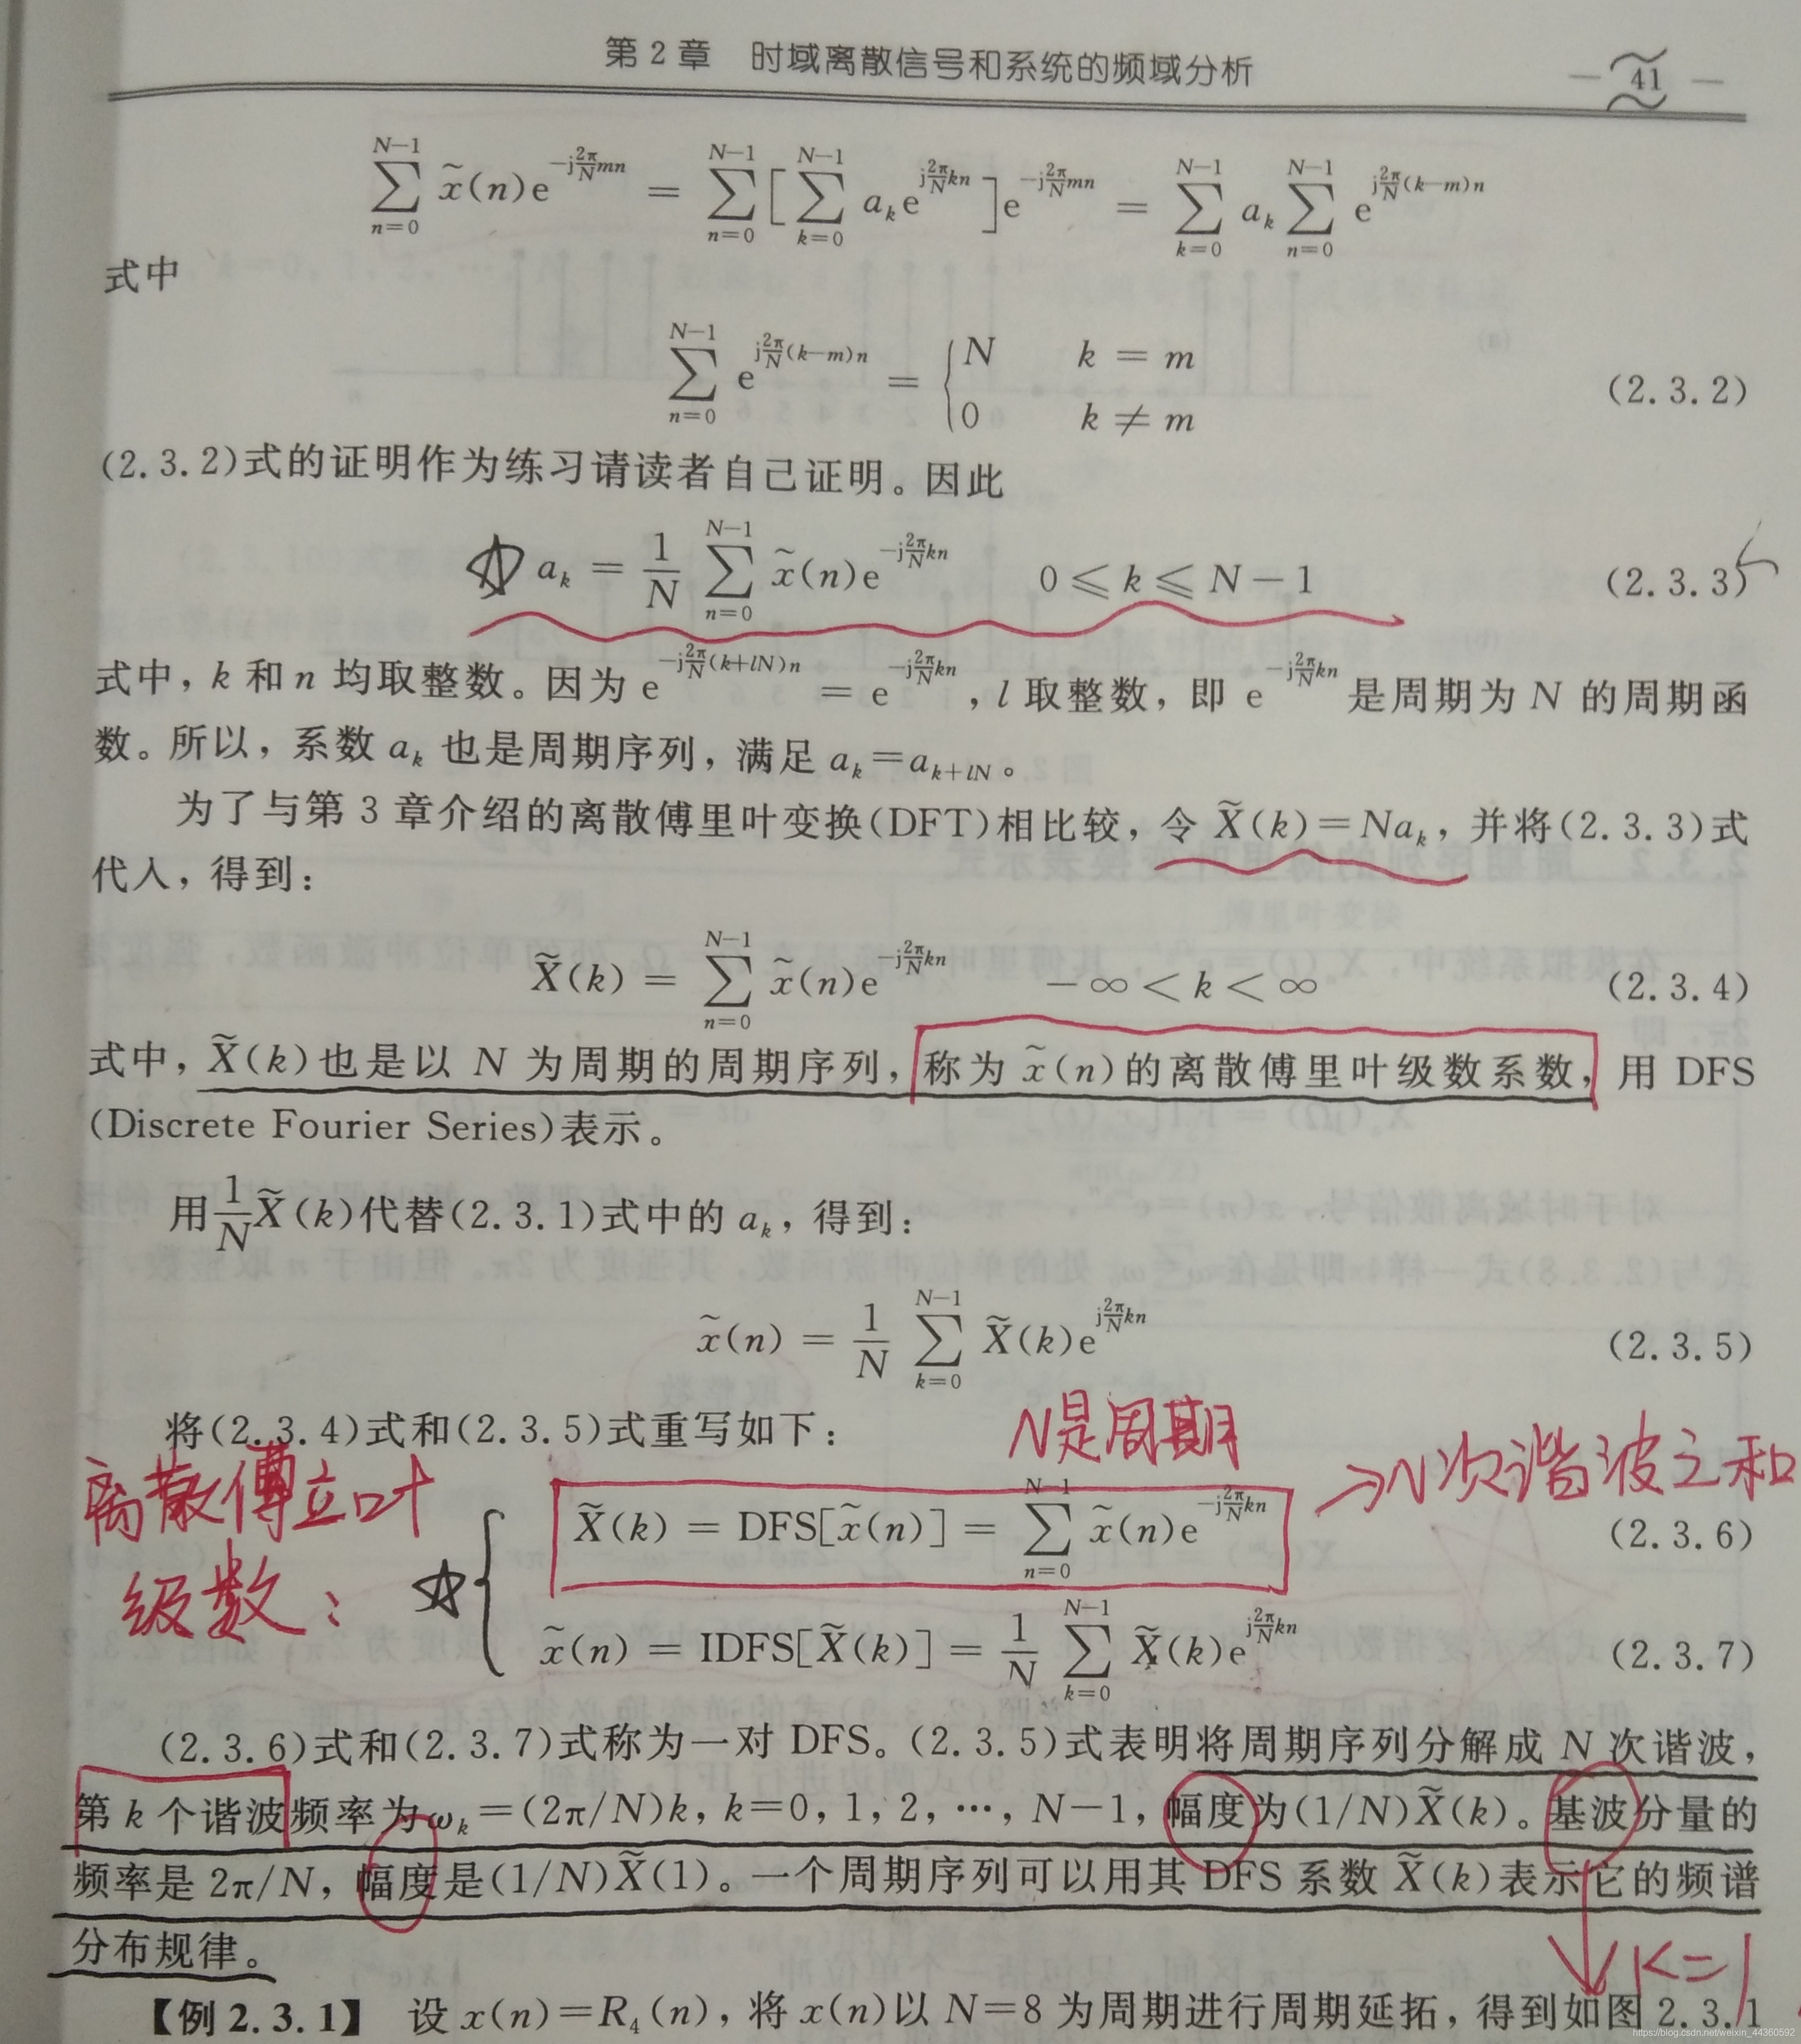 第 2 章　时域离散信号和系统的频域分析 — 41 —
$\sum_{n=0}^{N-1} \tilde{x}(n)e^{-j\frac{2\pi}{N}mn} = \sum_{n=0}^{N-1}\left[\sum_{k=0}^{N-1} a_k e^{j\frac{2\pi}{N}kn}\right]e^{-j\frac{2\pi}{N}mn} = \sum_{k=0}^{N-1} a_k \sum_{n=0}^{N-1} e^{j\frac{2\pi}{N}(k-m)n}$
式中
$\sum_{n=0}^{N-1} e^{j\frac{2\pi}{N}(k-m)n} = \begin{cases} N & k = m \\ 0 & k \neq m \end{cases}$ (2.3.2)
(2.3.2)式的证明作为练习请读者自己证明。因此
☆ $a_k = \frac{1}{N}\sum_{n=0}^{N-1} \tilde{x}(n)e^{-j\frac{2\pi}{N}kn}$　$0 \leqslant k \leqslant N-1$ (2.3.3)
式中，k 和 n 均取整数。因为 $e^{-j\frac{2\pi}{N}(k+lN)n} = e^{-j\frac{2\pi}{N}kn}$，l 取整数，即 $e^{-j\frac{2\pi}{N}kn}$ 是周期为 N 的周期函
数。所以，系数 $a_k$ 也是周期序列，满足 $a_k = a_{k+lN}$。
为了与第 3 章介绍的离散傅里叶变换(DFT)相比较，令 $\tilde{X}(k) = Na_k$，并将(2.3.3)式
代入，得到：
$\tilde{X}(k) = \sum_{n=0}^{N-1} \tilde{x}(n)e^{-j\frac{2\pi}{N}kn}$　$-\infty < k < \infty$ (2.3.4)
式中，$\tilde{X}(k)$也是以 N 为周期的周期序列，称为 $\tilde{x}(n)$的离散傅里叶级数系数，用 DFS
(Discrete Fourier Series)表示。
用$\frac{1}{N}\tilde{X}(k)$代替(2.3.1)式中的 $a_k$，得到：
$\tilde{x}(n) = \frac{1}{N}\sum_{k=0}^{N-1} \tilde{X}(k)e^{j\frac{2\pi}{N}kn}$ (2.3.5)
将(2.3.4)式和(2.3.5)式重写如下：
N是周期
→N次谐波之和
离散傅立叶
级数：
☆ $\tilde{X}(k) = \text{DFS}[\tilde{x}(n)] = \sum_{n=0}^{N-1} \tilde{x}(n)e^{-j\frac{2\pi}{N}kn}$ (2.3.6)
$\tilde{x}(n) = \text{IDFS}[\tilde{X}(k)] = \frac{1}{N}\sum_{k=0}^{N-1} \tilde{X}(k)e^{j\frac{2\pi}{N}kn}$ (2.3.7)
(2.3.6)式和(2.3.7)式称为一对 DFS。(2.3.5)式表明将周期序列分解成 N 次谐波，
第 k 个谐波频率为 $\omega_k = (2\pi/N)k$，k=0，1，2，…，N−1，幅度为$(1/N)\tilde{X}(k)$。基波分量的
频率是 2π/N，幅度是$(1/N)\tilde{X}(1)$。一个周期序列可以用其 DFS 系数 $\tilde{X}(k)$表示它的频谱
分布规律。
K=1
【例 2.3.1】　设 $x(n)=R_4(n)$，将 x(n)以 N=8 为周期进行周期延拓，得到如图 2.3.1
https://blog.csdn.net/weixin_44360592